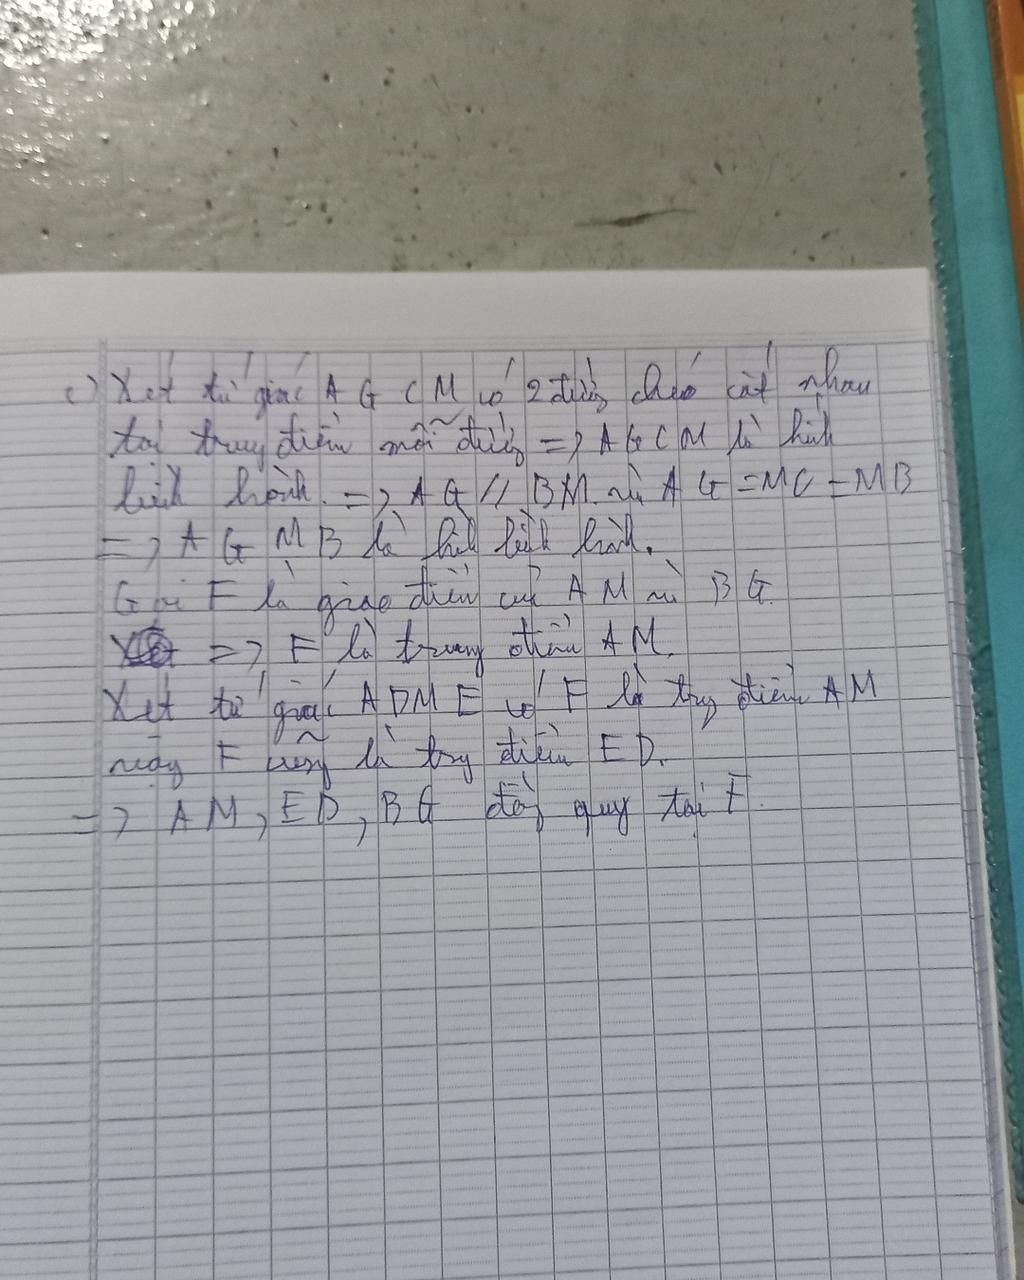 c) Xét tứ giác A G C M có 2 đường chéo cắt nhau
tại trung điểm mỗi đường => A G C M là hình
bình hành. => A G // BM. và A G = MC = MB
=> A G M B là hình bình hành.
Gọi F là giao điểm của A M và B G.
=> F là trung điểm A M.
Xét tứ giác A D M E có F là trg điểm A M
F cũng là trg điểm E D.
=> A M, E D, B G đồng quy tại F.